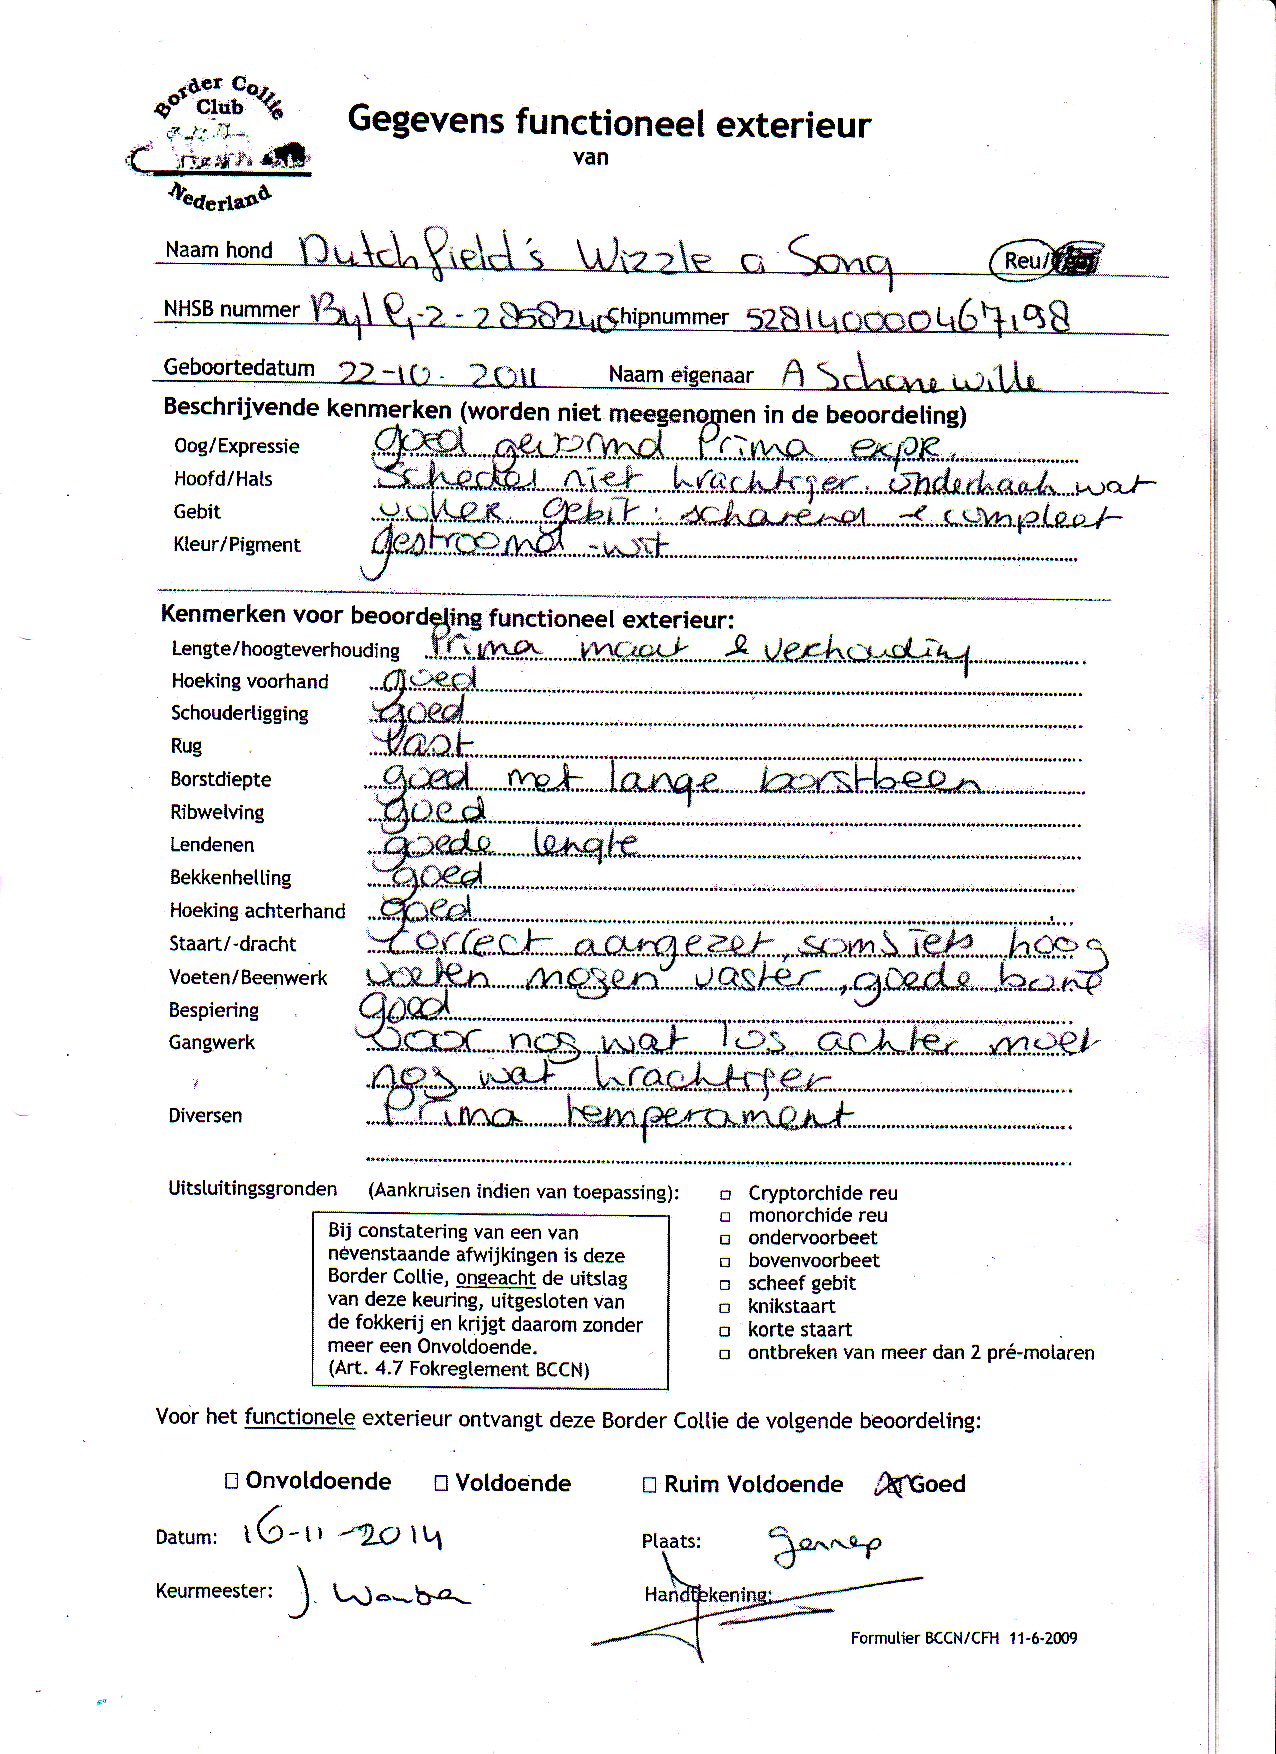 Border Collie
Club
Nederland
Gegevens functioneel exterieur
van
Naam hond Dutchfield's Wizzle a Song Reu/
NHSB nummer Bylg-2-2858246 Chipnummer 528140000467198
Geboortedatum 22-10-2011 Naam eigenaar A Schonewille
Beschrijvende kenmerken (worden niet meegenomen in de beoordeling)
Oog/Expressie goed gevormd Prima expr.
Hoofd/Hals Schedel niet krachtiger. onderkaak wat
Gebit voller gebit: scharend + compleet
Kleur/Pigment gestroomd-wit
Kenmerken voor beoordeling functioneel exterieur:
Lengte/hoogteverhouding Prima maat & verhouding
Hoeking voorhand goed
Schouderligging goed
Rug Vast
Borstdiepte goed met lange borstbeen
Ribwelving goed
Lendenen goede lengte
Bekkenhelling goed
Hoeking achterhand goed
Staart/-dracht Correct aangezet, soms iets hoog
Voeten/Beenwerk voeten mogen vaster, goede bone
Bespiering goed
Gangwerk Voor nog wat los achter moet
nog wat krachtiger
Diversen Prima temperament
Uitsluitingsgronden (Aankruisen indien van toepassing):
Cryptorchide reu
monorchide reu
ondervoorbeet
bovenvoorbeet
scheef gebit
knikstaart
korte staart
ontbreken van meer dan 2 pré-molaren
Bij constatering van een van
nevenstaande afwijkingen is deze
Border Collie, ongeacht de uitslag
van deze keuring, uitgesloten van
de fokkerij en krijgt daarom zonder
meer een Onvoldoende.
(Art. 4.7 Fokreglement BCCN)
Voor het functionele exterieur ontvangt deze Border Collie de volgende beoordeling:
Onvoldoende Voldoende Ruim Voldoende Goed
Datum: 16-11-2014 Plaats: Gennep
Keurmeester: J. Handtekening:
Formulier BCCN/CFH 11-6-2009